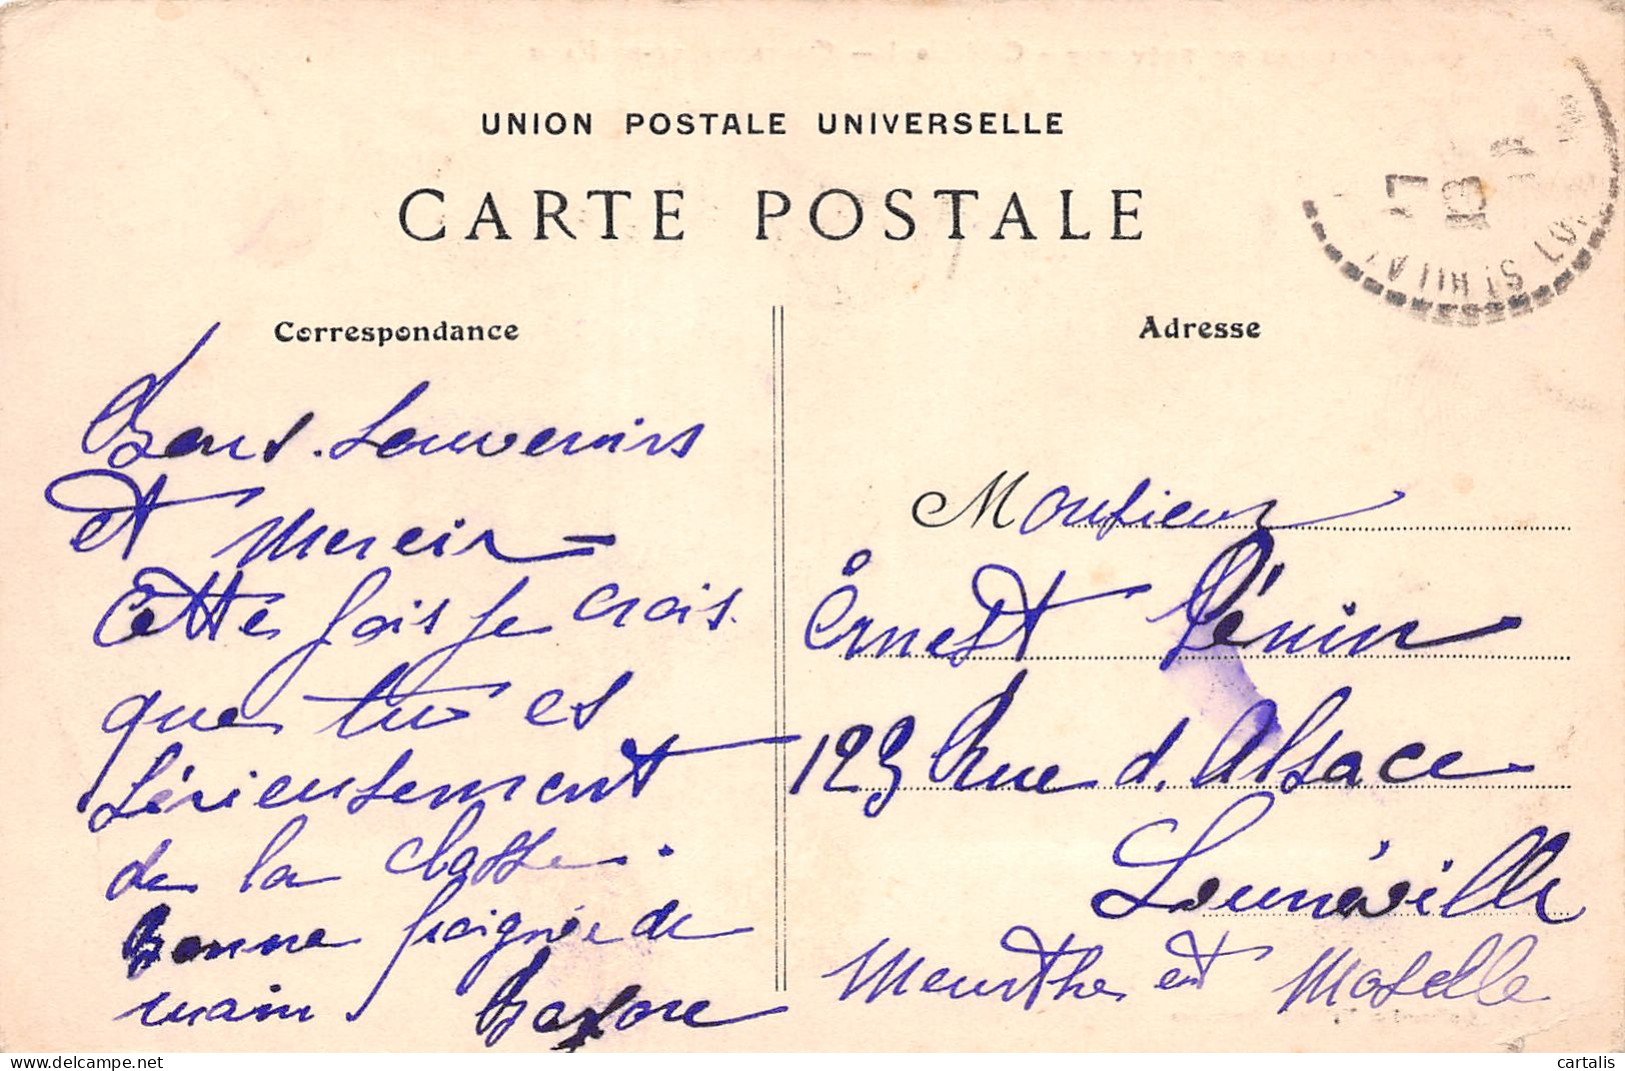 UNION POSTALE UNIVERSELLE
CARTE POSTALE
Correspondance
Bons Souvenirs
et merci
Cette fois je crois
que tu es
sérieusement
de la classe.
Bonne poignée de
main
Adresse
Monsieur
Ernest Pénin
123 Rue d'Alsace
Lunéville
Meurthe et Moselle
cartalis